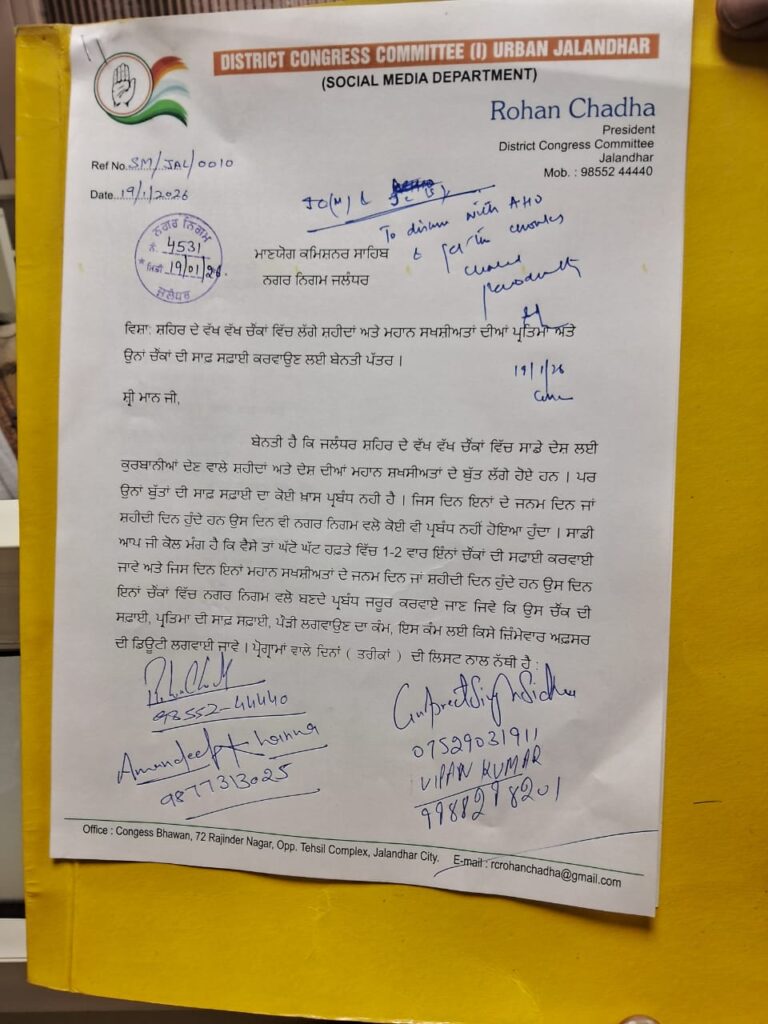 DISTRICT CONGRESS COMMITTEE (I) URBAN JALANDHAR
(SOCIAL MEDIA DEPARTMENT)
Rohan Chadha
President
District Congress Committee
Jalandhar
Mob. : 98552 44440
Ref No. SM/JAL/0010
Date. 19/1/2026
JC(M) &
To discuss with AHO
& get the chowks
cleaned
periodically
19/1/26
ਨਗਰ ਨਿਗਮ
ਨੰ. 4531
ਮਿਤੀ 19/01/26.
ਜਲੰਧਰ
ਮਾਣਯੋਗ ਕਮਿਸ਼ਨਰ ਸਾਹਿਬ
ਨਗਰ ਨਿਗਮ ਜਲੰਧਰ
ਵਿਸ਼ਾ: ਸ਼ਹਿਰ ਦੇ ਵੱਖ ਵੱਖ ਚੌਂਕਾਂ ਵਿੱਚ ਲੱਗੇ ਸ਼ਹੀਦਾਂ ਅਤੇ ਮਹਾਨ ਸਖਸ਼ੀਅਤਾਂ ਦੀਆਂ ਪ੍ਰਤਿਮਾਂ ਅਤੇ
ਉਨਾਂ ਚੌਂਕਾਂ ਦੀ ਸਾਫ਼ ਸਫ਼ਾਈ ਕਰਵਾਉਣ ਲਈ ਬੇਨਤੀ ਪੱਤਰ ।
ਸ਼੍ਰੀ ਮਾਨ ਜੀ,
ਬੇਨਤੀ ਹੈ ਕਿ ਜਲੰਧਰ ਸ਼ਹਿਰ ਦੇ ਵੱਖ ਵੱਖ ਚੌਂਕਾਂ ਵਿੱਚ ਸਾਡੇ ਦੇਸ਼ ਲਈ
ਕੁਰਬਾਨੀਆਂ ਦੇਣ ਵਾਲੇ ਸ਼ਹੀਦਾਂ ਅਤੇ ਦੇਸ਼ ਦੀਆਂ ਮਹਾਨ ਸ਼ਖਸੀਅਤਾਂ ਦੇ ਬੁੱਤ ਲੱਗੇ ਹੋਏ ਹਨ । ਪਰ
ਉਨਾਂ ਬੁੱਤਾਂ ਦੀ ਸਾਫ਼ ਸਫ਼ਾਈ ਦਾ ਕੋਈ ਖ਼ਾਸ ਪ੍ਰਬੰਧ ਨਹੀ ਹੈ । ਜਿਸ ਦਿਨ ਇਨਾਂ ਦੇ ਜਨਮ ਦਿਨ ਜਾਂ
ਸ਼ਹੀਦੀ ਦਿਨ ਹੁੰਦੇ ਹਨ ਉਸ ਦਿਨ ਵੀ ਨਗਰ ਨਿਗਮ ਵਲੋ ਕੋਈ ਵੀ ਪ੍ਰਬੰਧ ਨਹੀਂ ਹੋਇਆ ਹੁੰਦਾ । ਸਾਡੀ
ਆਪ ਜੀ ਕੋਲ ਮੰਗ ਹੈ ਕਿ ਵੈਸੇ ਤਾਂ ਘੱਟੋ ਘੱਟ ਹਫ਼ਤੇ ਵਿੱਚ 1-2 ਵਾਰ ਇੰਨਾਂ ਚੌਂਕਾਂ ਦੀ ਸਫਾਈ ਕਰਵਾਈ
ਜਾਵੇ ਅਤੇ ਜਿਸ ਦਿਨ ਇਨਾਂ ਮਹਾਨ ਸਖਸ਼ੀਅਤਾਂ ਦੇ ਜਨਮ ਦਿਨ ਜਾਂ ਸ਼ਹੀਦੀ ਦਿਨ ਹੁੰਦੇ ਹਨ ਉਸ ਦਿਨ
ਇਨਾਂ ਚੌਂਕਾਂ ਵਿੱਚ ਨਗਰ ਨਿਗਮ ਵਲੋ ਬਣਦੇ ਪ੍ਰਬੰਧ ਜਰੂਰ ਕਰਵਾਏ ਜਾਣ ਜਿਵੇ ਕਿ ਉਸ ਚੌਂਕ ਦੀ
ਸਫ਼ਾਈ, ਪ੍ਰਤਿਮਾ ਦੀ ਸਾਫ਼ ਸਫ਼ਾਈ, ਪੌੜੀ ਲਗਵਾਉਣ ਦਾ ਕੰਮ, ਇਸ ਕੰਮ ਲਈ ਕਿਸੇ ਜ਼ਿੰਮੇਵਾਰ ਅਫ਼ਸਰ
ਦੀ ਡਿਊਟੀ ਲਗਵਾਈ ਜਾਵੇ । ਪ੍ਰੋਗ੍ਰਾਮਾਂ ਵਾਲੇ ਦਿਨਾਂ ( ਤਰੀਕਾਂ ) ਦੀ ਲਿਸਟ ਨਾਲ ਨੱਥੀ ਹੈ :
98552-44440
Amandeep Khanna
9877313025
Gurpreet Singh Sidhu
07529031911
VIPAN KUMAR
9988298201
Office : Congess Bhawan, 72 Rajinder Nagar, Opp. Tehsil Complex, Jalandhar City. E-mail : rcrohanchadha@gmail.com